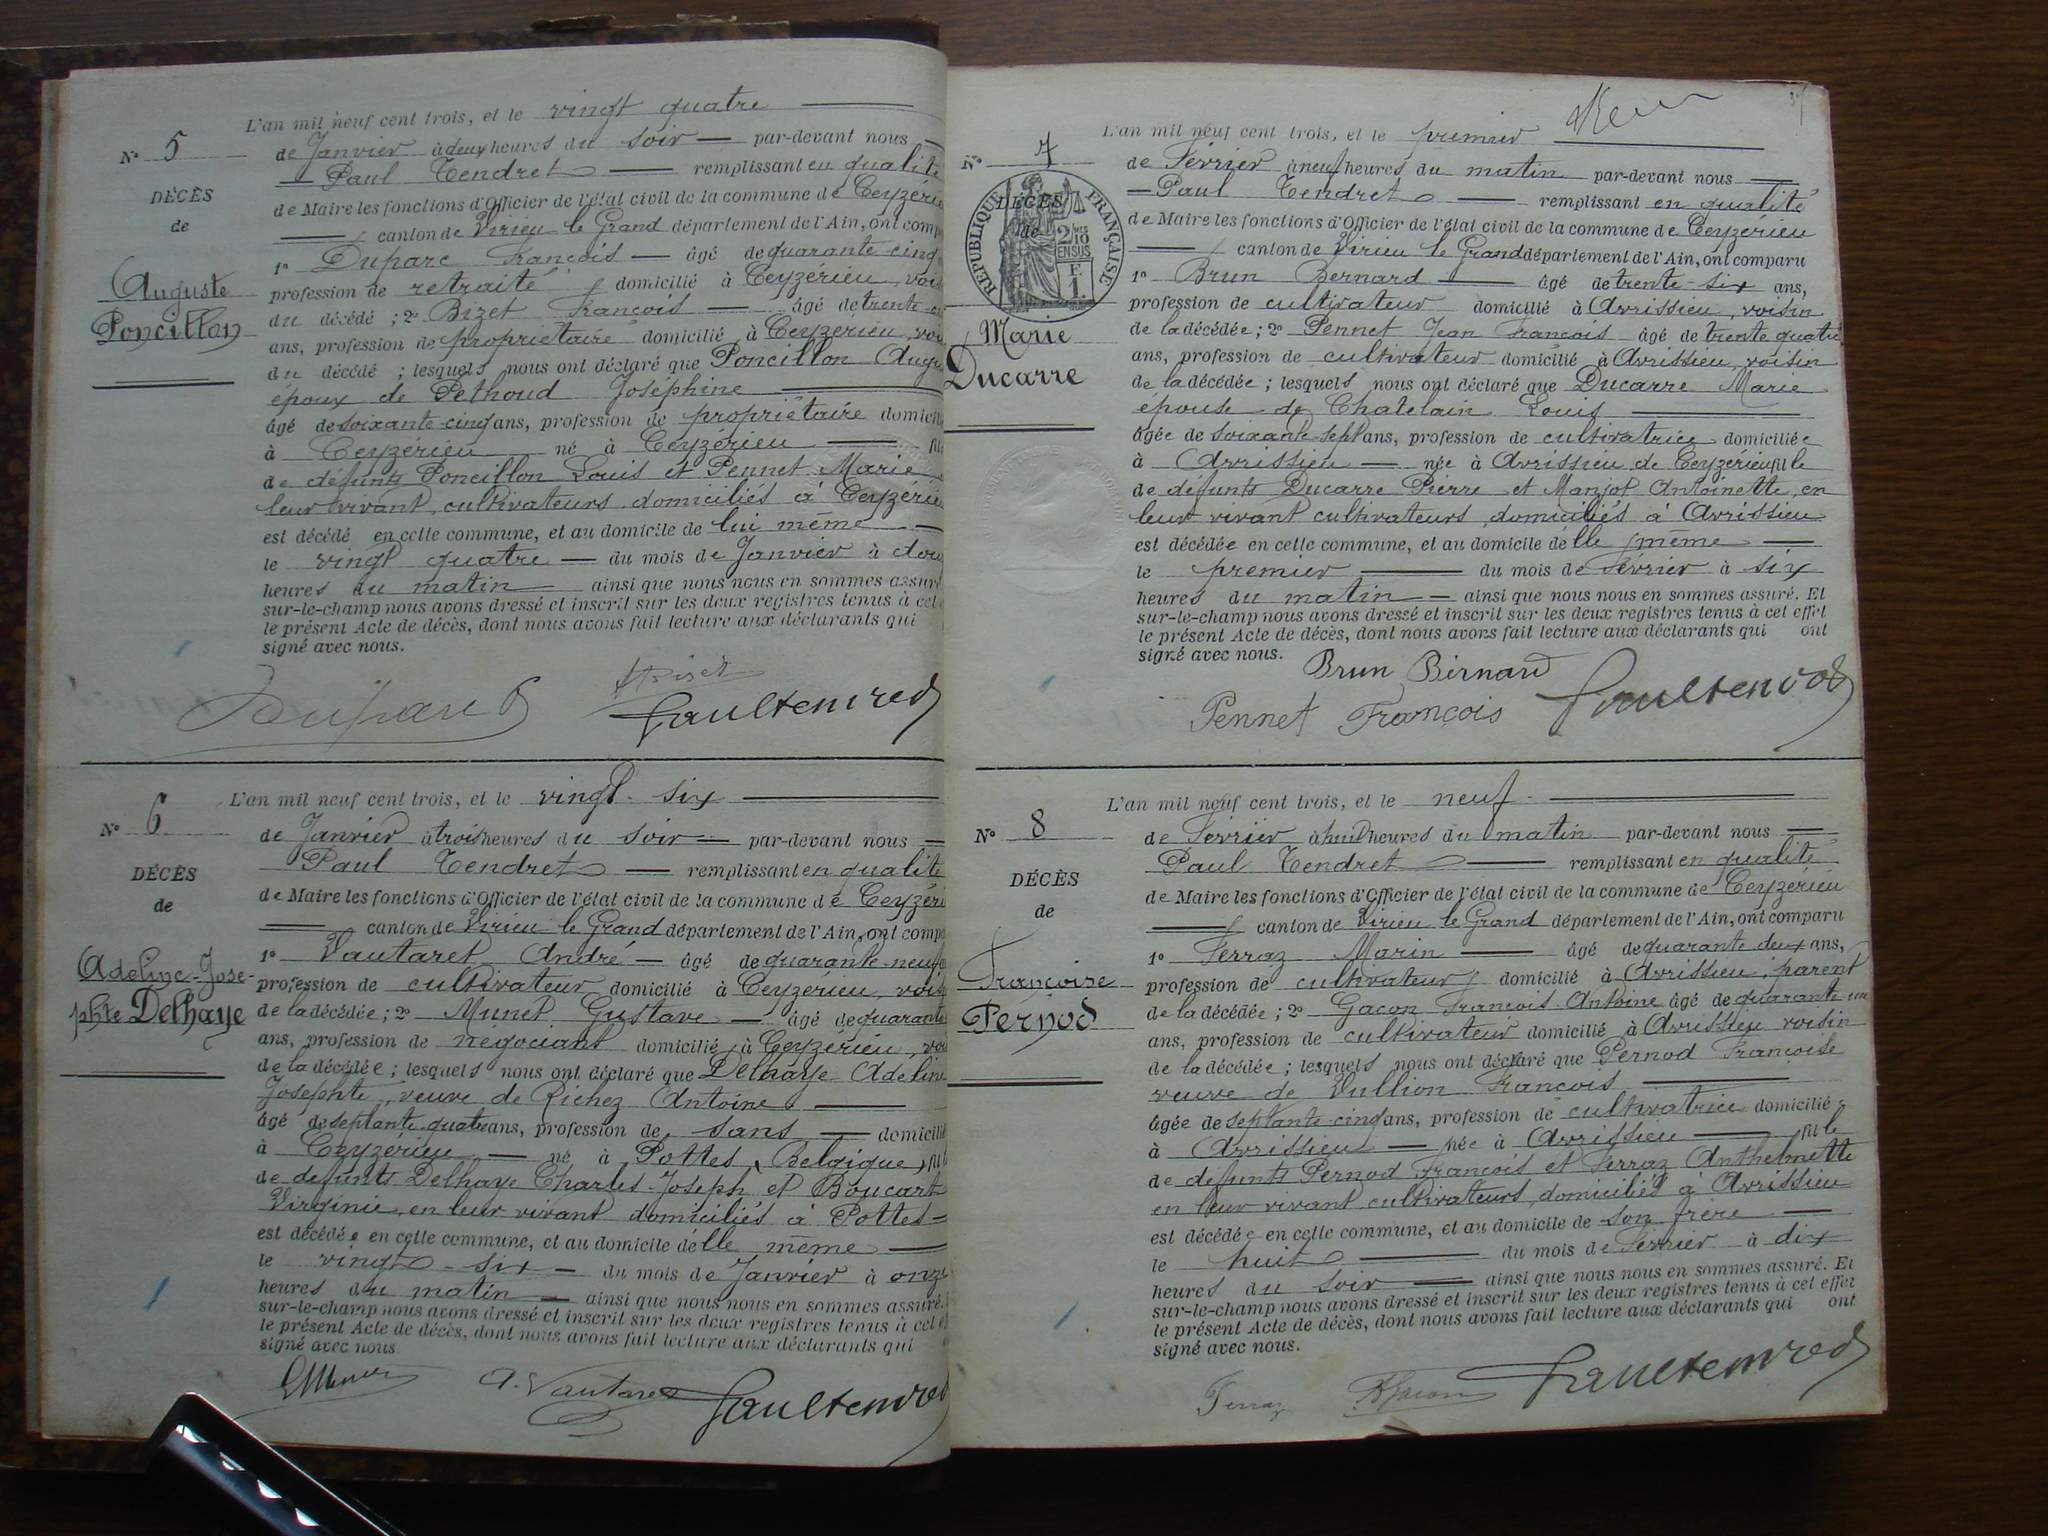 L'an mil neuf cent trois, et le vingt quatre
N° 5
de Janvier à deux heures du soir par-devant nous
Paul Tendret remplissant en qualité
DÉCÈS
de Maire les fonctions d'Officier de l'état civil de la commune de Ceyzérieu
de
canton de Virieu le Grand département de l'Ain, ont comp
1° Duparc François âgé de quarante cinq
Auguste
profession de retraité domicilié à Ceyzérieu, vois
Poncillon
du décédé ; 2° Bizet François âgé de trente
ans, profession de propriétaire domicilié à Ceyzérieu, voi
du décédé ; lesquels nous ont déclaré que Poncillon Augu
époux de Pethoud Joséphine
âgé de soixante-cinq ans, profession de propriétaire domicili
à Ceyzérieu né à Ceyzérieu fils
de défunts Poncillon Louis et Pennet Marie
leur vivant, cultivateurs domiciliés à Ceyzérieu
est décédé en cette commune, et au domicile de lui même
le vingt quatre du mois de Janvier à
heures du matin ainsi que nous nous en sommes assuré
sur-le-champ nous avons dressé et inscrit sur les deux registres tenus à cet
le présent Acte de décès, dont nous avons fait lecture aux déclarants qui
signé avec nous.
Duparc
Bizet
L'an mil neuf cent trois, et le vingt-six
N° 6
de Janvier à trois heures du soir par-devant nous
Paul Tendret remplissant en qualité
DÉCÈS
de Maire les fonctions d'Officier de l'état civil de la commune de Ceyzéri
de
canton de Virieu le Grand département de l'Ain, ont compa
1° Vautaret André âgé de quarante-neuf
Adeline-Jose-
profession de cultivateur domicilié à Ceyzérieu, vois
phte Delhaye
de la décédée ; 2° Munet Gustave âgé de quarante
ans, profession de négociant domicilié à Ceyzérieu, voi
de la décédée ; lesquels nous ont déclaré que Delhaye Adeline
Josephte, veuve de Richez Antoine
âgé de septante quatre ans, profession de sans domicilié
à Ceyzérieu né à Pottes, Belgique, fil
de defunts Delhaye Charles-Joseph et Boucart
Virginie, en leur vivant domiciliés à Pottes
est décédée en cette commune, et au domicile d'elle même
le vingt-six du mois de Janvier à onze
heures du matin ainsi que nous nous en sommes assuré.
sur-le-champ nous avons dressé et inscrit sur les deux registres tenus à cet
le présent Acte de décès, dont nous avons fait lecture aux déclarants qui
signé avec nous
A. Vautaret
L'an mil neuf cent trois, et le premier
N° 7
de Février à neuf heures du matin par-devant nous
Paul Tendret remplissant en qualité
DÉCÈS
de Maire les fonctions d'Officier de l'état civil de la commune de Ceyzérieu
de
canton de Virieu le Grand département de l'Ain, ont comparu
RÉPUBLIQUE FRANÇAISE
2/10 EN SUS
1° Brun Bernard âgé de trente-six ans,
profession de cultivateur domicilié à Avrissieu, voisin
Marie
de la décédée ; 2° Pennet Jean François âgé de trente quatre
Ducarre
ans, profession de cultivateur domicilié à Avrissieu, voisin
de la décédée ; lesquels nous ont déclaré que Ducarre Marie
épouse de Chatelain Louis
âgée de soixante sept ans, profession de cultivatrice domiciliée
à Avrissieu née à Avrissieu de Ceyzérieu fille
de défunts Ducarre Pierre et Manjot Antoinette, en
leur vivant cultivateurs, domiciliés à Avrissieu
est décédée en cette commune, et au domicile d'elle même
le premier du mois de Février à six
heures du matin ainsi que nous nous en sommes assuré. Et
sur-le-champ nous avons dressé et inscrit sur les deux registres tenus à cet effet
le présent Acte de décès, dont nous avons fait lecture aux déclarants qui ont
signé avec nous.
Brun Bernard
Pennet François
L'an mil neuf cent trois, et le neuf
N° 8
de Février à huit heures du matin par-devant nous
Paul Tendret remplissant en qualité
DÉCÈS
de Maire les fonctions d'Officier de l'état civil de la commune de Ceyzérieu
de
canton de Virieu le Grand département de l'Ain, ont comparu
1° Ferraz Marin âgé de quarante deux ans,
Françoise
profession de cultivateur domicilié à Avrissieu, parent
Pernod
de la décédée ; 2° Gacon François-Antoine âgé de quarante un
ans, profession de cultivateur domicilié à Avrissieu voisin
de la décédée ; lesquels nous ont déclaré que Pernod Françoise
veuve de Vullion François
âgée de septante cinq ans, profession de cultivatrice domiciliée
à Avrissieu née à Avrissieu fille
de defunts Pernod François et Ferraz Anthelmette
en leur vivant cultivateurs, domiciliés à Avrissieu
est décédée en cette commune, et au domicile de son frère
le huit du mois de Février à dix
heures du soir ainsi que nous nous en sommes assuré. Et
sur-le-champ nous avons dressé et inscrit sur les deux registres tenus à cet effet
le présent Acte de décès, dont nous avons fait lecture aux déclarants qui ont
signé avec nous.
Ferraz